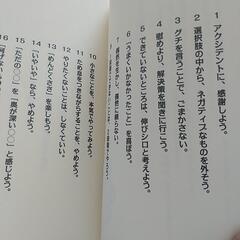 1 アクシデントに、感謝しよう。
2 選択肢の中から、ネガティブなものを外そう。
3 グチを言うことで、ごまかさない。
4 慰めより、解決策を聞きに行こう。
5 できていないところは、伸びシロと考えよう。
6 「うまくいかなかったこと」を喜ぼう。
10 小さなことを、本気でやってみよう。
11 ため息をつきながらすることを、やめよう。
12 やりたくないことは、しなくていい。
13 「めんどくささ」を楽しもう。
14 「いやいや」なら、やめよう。
15 「ただの○○」を「奥が深い○○」と感じよう。
16